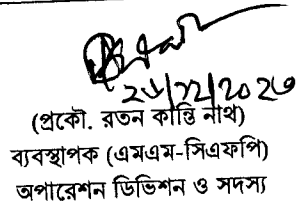 ২৮/১২/২০২৩
(প্রকৌ. রতন কান্তি নাথ)
ব্যবস্থাপক (এমএম-সিএফপি)
অপারেশন ডিভিশন ও সদস্য